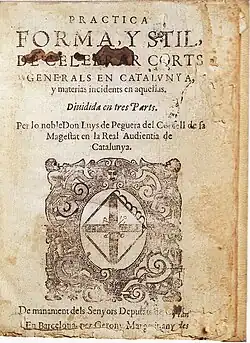 PRACTICA
FORMA, Y STIL,
DE CELEBRAR CORTS
GENERALS EN CATALVNYA,
y materias incidents en aquellas.
Diuidida en tres Parts.
Per lo noble Don Luys de Peguera del Consell de sa
Magestat en la Real Audientia de
Catalunya.
De manament dels Senyors Deputats
En Barcelona, per Gerony Margarit, any